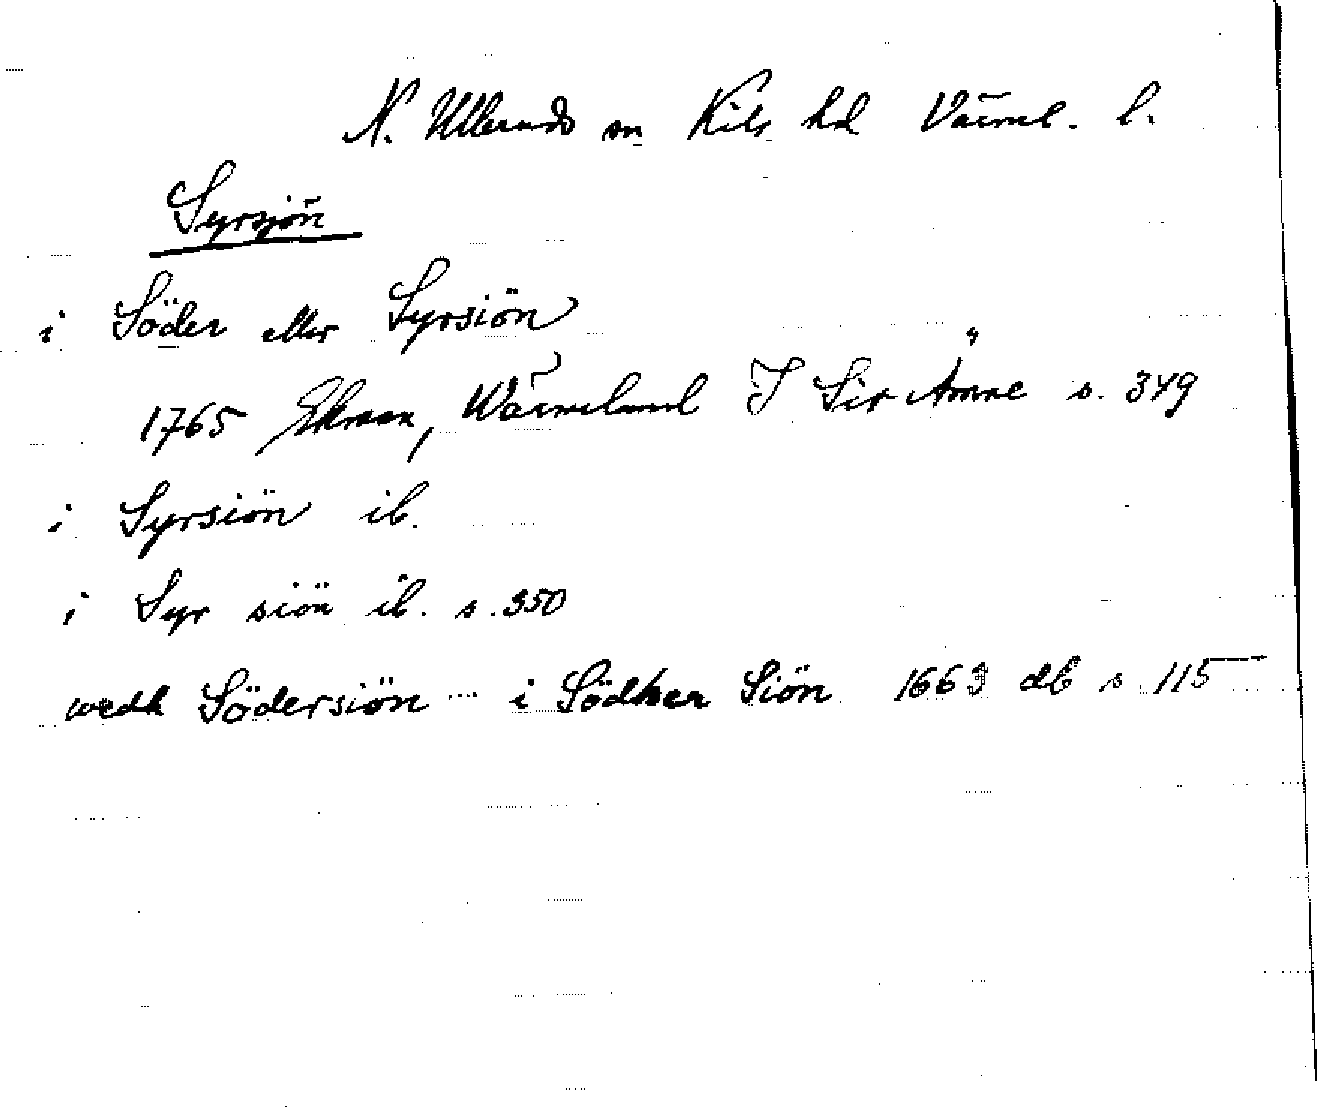 N. Ulleruds sn Kils hd Värml. l.
Syrsjön
i Söder eller Syrsiön
1765 Ekman, Wärmeland I Sir Ämne s. 349
i Syrsiön ib.
i Syr siön ib. s. 350
wedh Södersiön ... i Södher Siön 1663 db s 115